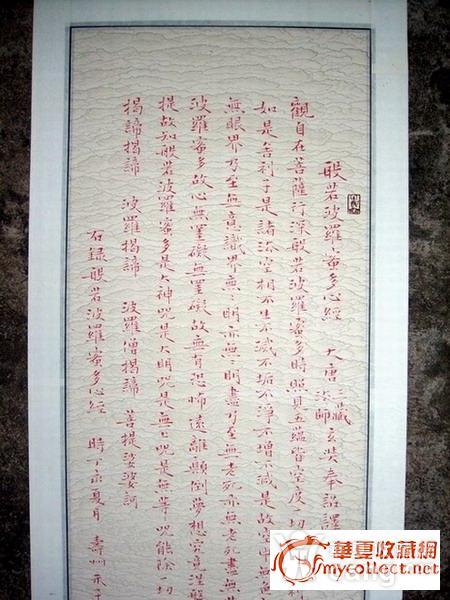 般若波羅蜜多心經 大唐三藏法師玄奘奉詔譯
觀自在菩薩行深般若波羅蜜多時照見五蘊皆空度一切
如是舍利子是諸法空相不生不滅不垢不淨不增不減是故空中無
無眼界乃至無意識界無〻明亦無〻明盡乃至無老死亦無老死盡無
波羅蜜多故心無罣礙無罣礙故無有恐怖遠離顛倒夢想究竟涅槃
提故知般若波羅蜜多是大神咒是大明咒是無上咒是無等〻咒能除一切
揭諦揭諦 波羅揭諦 波羅僧揭諦 菩提娑婆訶
右録般若波羅蜜多心經 時丁亥夏月 壽州
華夏收藏網
mycollect.net